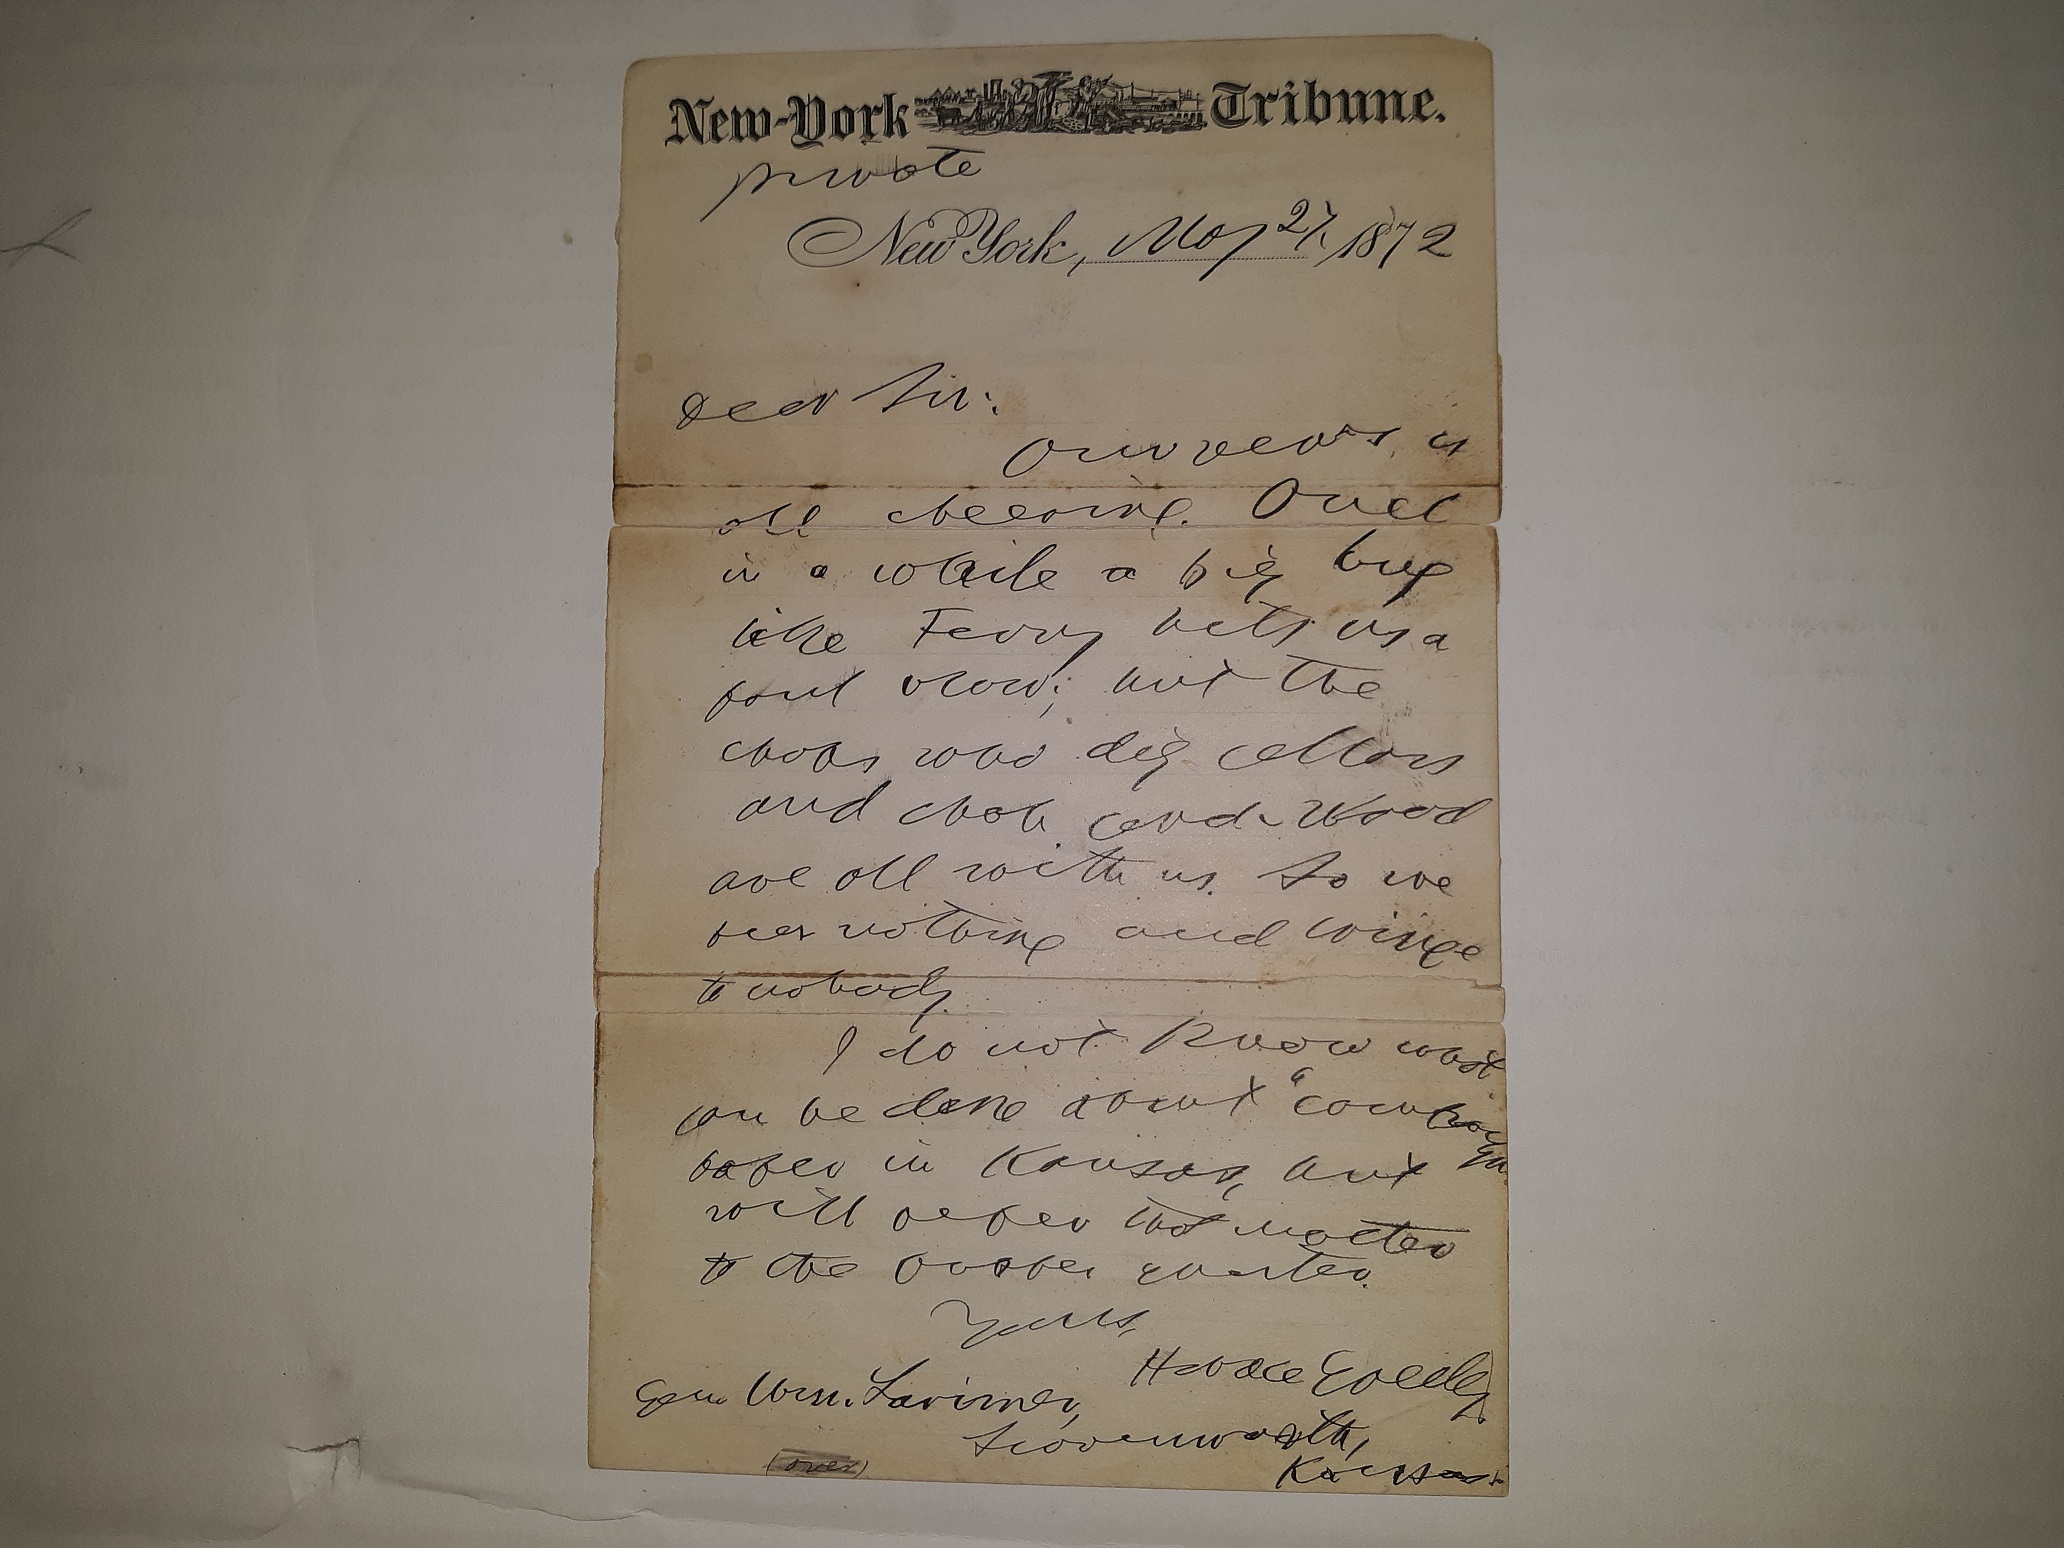 New-York Tribune.
private
New York, May 27, 1872
Dear Sir:
Our news is
all cheering. Once
in a while a big bug
like Ferry hits us a
foul blow; but the
chaps who dig cellars
and chop cord-wood
are all with us. So we
fear nothing and cringe
to nobody.
I do not know what
can be done about "
paper in Kansas, but
will refer that matter
to the proper quarter.
Yours,
Horace Greeley
Gen. Wm. Larimer,
Leavenworth,
Kansas
(over)